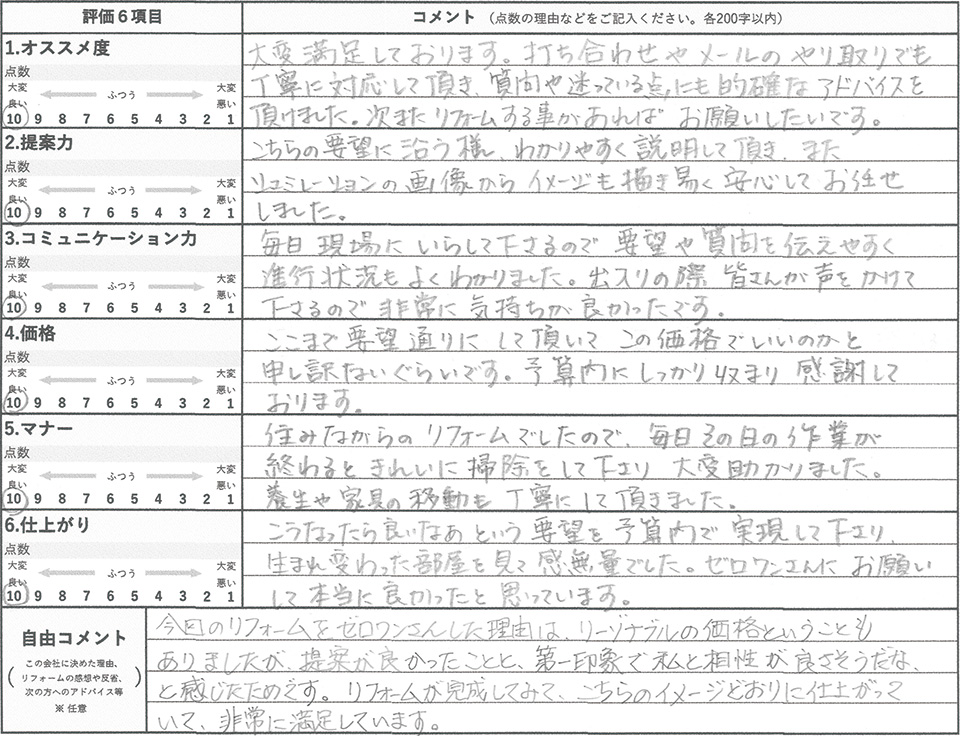 評価6項目 コメント (点数の理由などをご記入ください。各200字以内)
1.オススメ度
点数
大変良い ふつう 大変悪い
10 9 8 7 6 5 4 3 2 1
大変満足しております。打ち合わせやメールのやり取りでも
丁寧に対応して頂き、質問や迷っている点にも的確なアドバイスを
頂けました。次またリフォームする事があればお願いしたいです。
2.提案力
点数
大変良い ふつう 大変悪い
10 9 8 7 6 5 4 3 2 1
こちらの要望に沿う様、わかりやすく説明して頂き、また
シュミレーションの画像からイメージも描き易く安心してお任せ
しました。
3.コミュニケーション力
点数
大変良い ふつう 大変悪い
10 9 8 7 6 5 4 3 2 1
毎日現場にいらして下さるので要望や質問を伝えやすく
進行状況もよくわかりました。出入りの際皆さんが声をかけて
下さるので非常に気持ちが良かったです。
4.価格
点数
大変良い ふつう 大変悪い
10 9 8 7 6 5 4 3 2 1
ここまで要望通りにして頂いてこの価格でいいのかと
申し訳ないぐらいです。予算内にしっかり収まり感謝して
おります。
5.マナー
点数
大変良い ふつう 大変悪い
10 9 8 7 6 5 4 3 2 1
住みながらのリフォームでしたので、毎日その日の作業が
終わるときれいに掃除をして下さり大変助かりました。
養生や家具の移動も丁寧にして頂きました。
6.仕上がり
点数
大変良い ふつう 大変悪い
10 9 8 7 6 5 4 3 2 1
こうなったら良いなあという要望を予算内で実現して下さり、
生まれ変わった部屋を見て感無量でした。ゼロワンさんにお願い
して本当に良かったと思っています。
自由コメント
(この会社に決めた理由、
リフォームの感想や反省、
次の方へのアドバイス等)
※任意
今回のリフォームをゼロワンさんした理由は、リーゾナブルの価格ということも
ありましたが、提案が良かったことと、第一印象で私と相性が良さそうだな、
と感じたためです。リフォームが完成してみて、こちらのイメージどおりに仕上がって
いて、非常に満足しています。